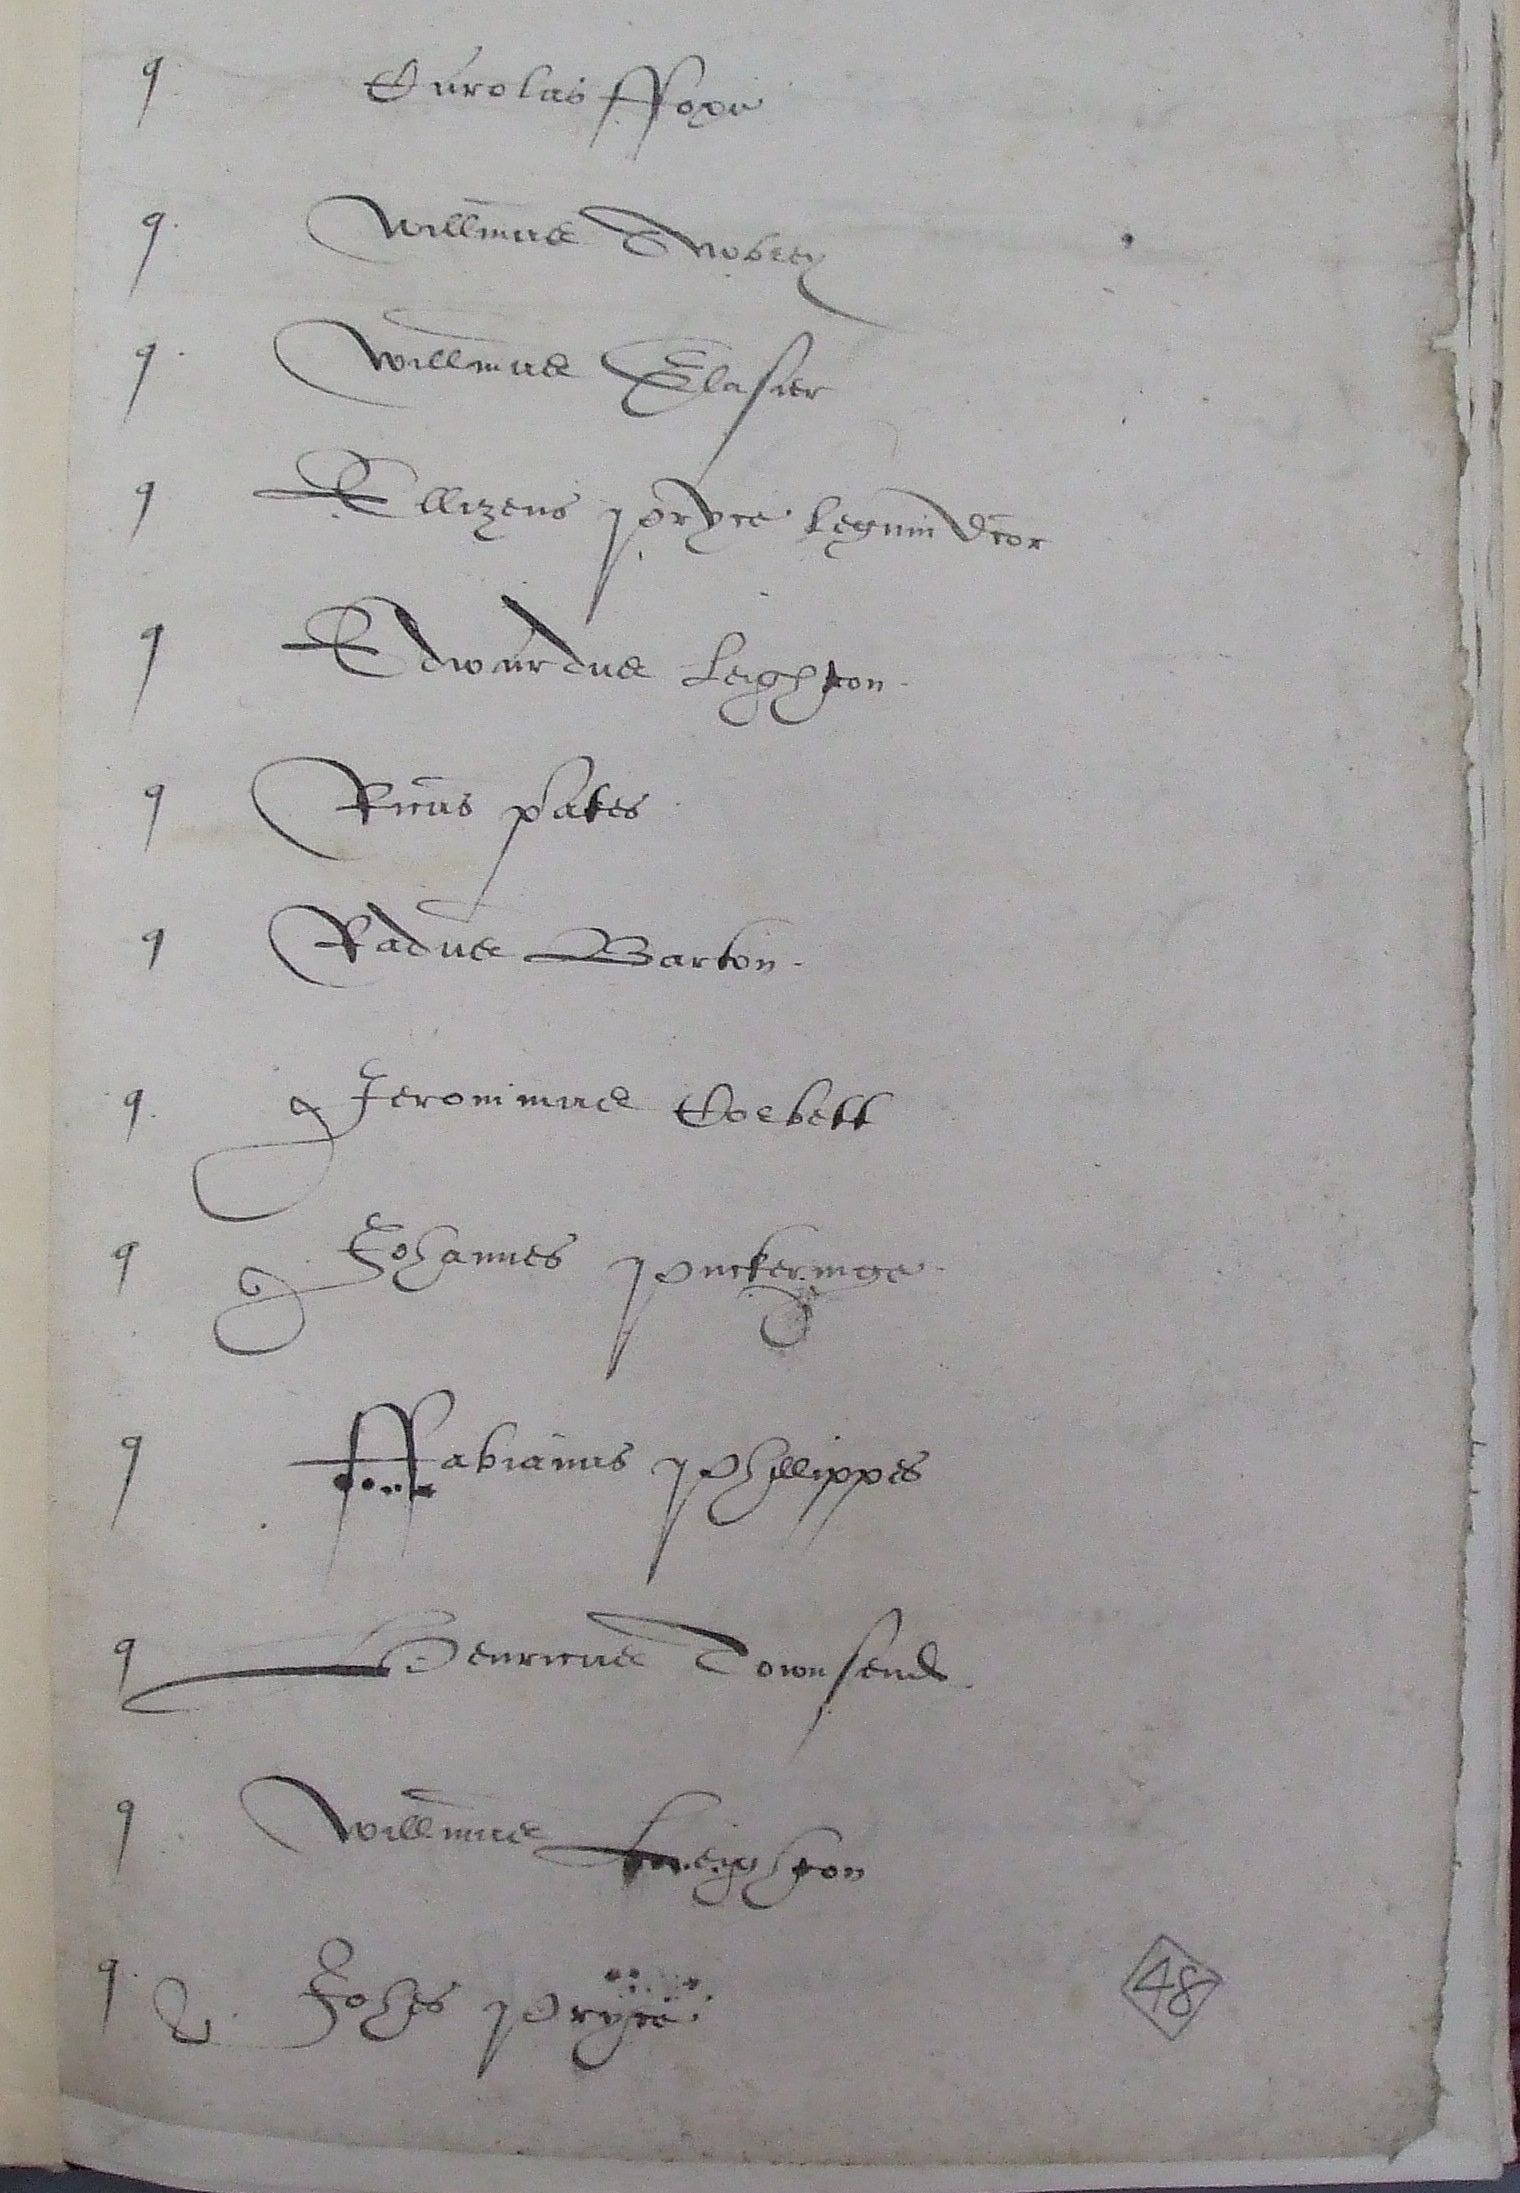 q Carolas ffoxe
q Willmus Awbrey
q Willmus Glasier
q Ellizeus Pryce legum dcor
q Edwardus Leighton
q Ricus Pates
q Radus Barton
q Jeronimus Corbett
q Johannes Puckeringe
q ffabianus Phillippes
q Henricus Townsend
q Willmus Leighton
q Johes Pryce
48